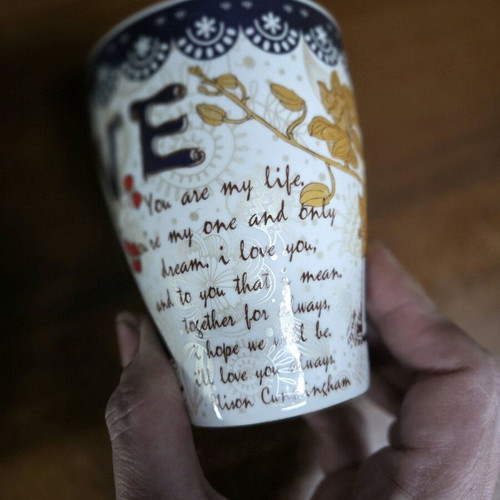 VE
You are my life.
are my one and only
dream. i love you,
and to you that i mean.
together for always,
hope we
ill love you always.
Alison Cunningham